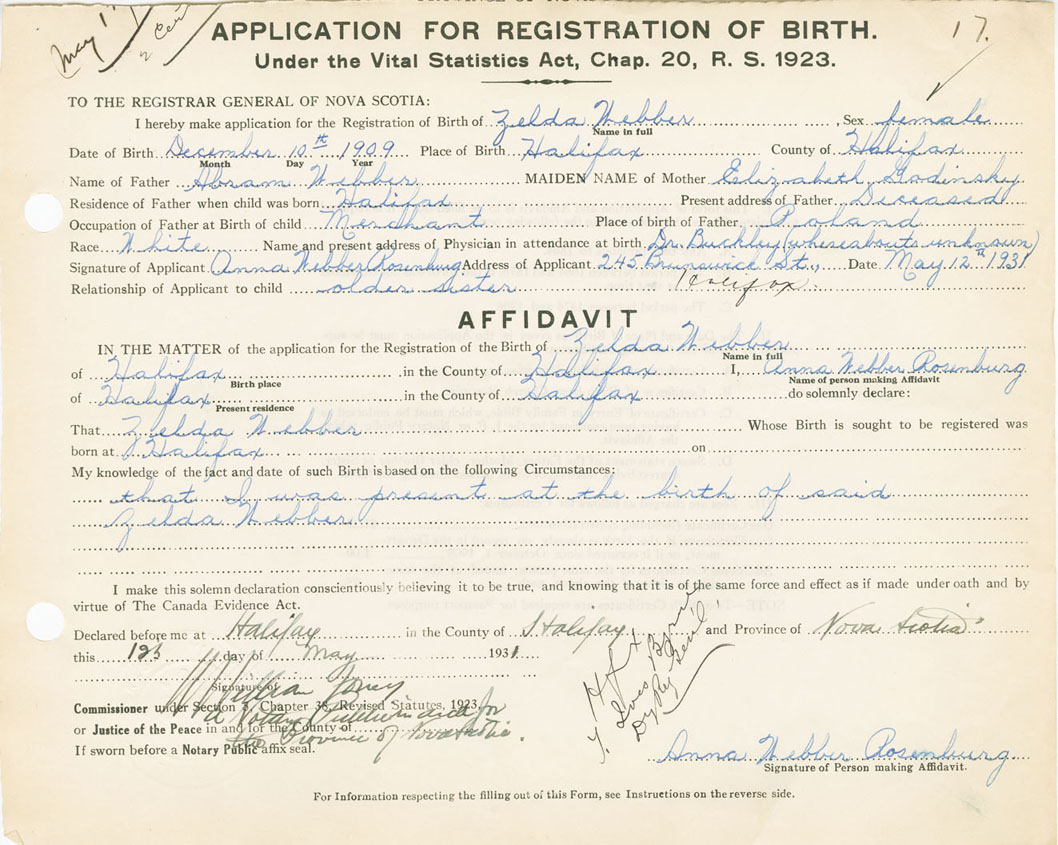 May 1
2 Cer
17.
APPLICATION FOR REGISTRATION OF BIRTH.
Under the Vital Statistics Act, Chap. 20, R. S. 1923.
TO THE REGISTRAR GENERAL OF NOVA SCOTIA:
I hereby make application for the Registration of Birth of Zelda Webber, Sex female
Name in full
Date of Birth December 10th 1909 Place of Birth Halifax County of Halifax
Month Day Year
Name of Father Abram Webber MAIDEN NAME of Mother Elizabeth Glodinsky
Residence of Father when child was born Halifax Present address of Father Deceased
Occupation of Father at Birth of child Merchant Place of birth of Father Poland
Race White Name and present address of Physician in attendance at birth Dr. Buckley (whereabouts unknown)
Signature of Applicant Anna Webber Rosenburg Address of Applicant 245 Brunswick St., Date May 12th 1931
Relationship of Applicant to child older sister Halifax.
AFFIDAVIT
IN THE MATTER of the application for the Registration of the Birth of Zelda Webber
Name in full
of Halifax, in the County of Halifax I, Anna Webber Rosenburg
Birth place Name of person making Affidavit
of Halifax in the County of Halifax do solemnly declare:
Present residence
That Zelda Webber Whose Birth is sought to be registered was
born at Halifax on
My knowledge of the fact and date of such Birth is based on the following Circumstances:
that I was present at the birth of said
Zelda Webber
I make this solemn declaration conscientiously believing it to be true, and knowing that it is of the same force and effect as if made under oath and by
virtue of The Canada Evidence Act.
Declared before me at Halifax in the County of Halifax and Province of Nova Scotia
this 12th day of May 1931
Signature of William
Commissioner under Section 7, Chapter 38, Revised Statutes, 1923,
A Notary Public in and for
or Justice of the Peace in and for the County of
the Province of Nova Scotia.
If sworn before a Notary Public affix seal.
Anna Webber Rosenburg
Signature of Person making Affidavit.
For Information respecting the filling out of this Form, see Instructions on the reverse side.